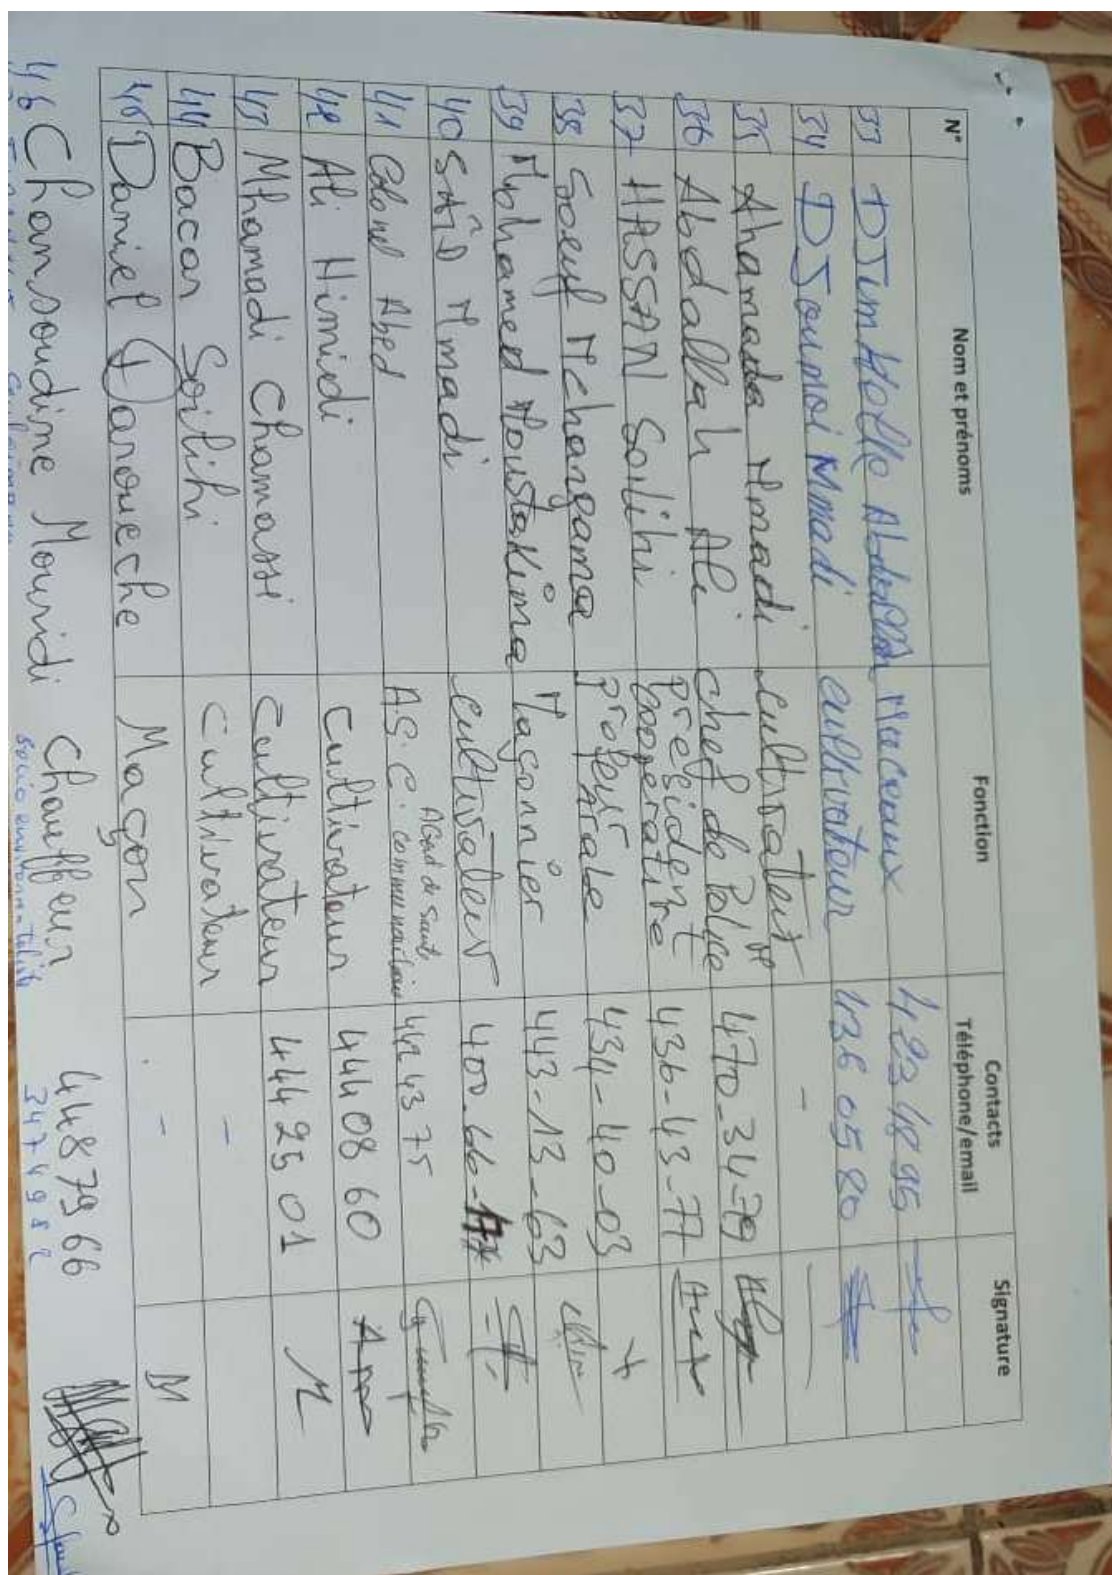 N° Nom et prénoms Fonction Contacts Téléphone/email Signature
33 423 48 95
34 DJoumoi Mmadi cultivateur 436 05 80
35 Ahamada Mmadi cultivateur -
36 Abdallah Ali chef de Police 470-34-79
37 HASSAN Soilihi président coopérative 436-43-77
38 Soeuf Mchangama profeur Arabe 434-40-03
39 Mohamed Moustakima Maçonnier 443-13-63
40 SAÏD Mmadi cultivateur 400-66-
41 Colonel Abed A.S.C. Agent de Santé communautaire 441 43 75
42 Ali Himidi Cultivateur 444 08 60
43 Mhamadi Chamassi Cultivateur 444 25 01 M
44 Bacar Soilihi Cultivateur -
45 Daniel Danoueche Maçon - M
46 Chamsoudine Mouridi Chauffeur 448 79 66
347 49 82